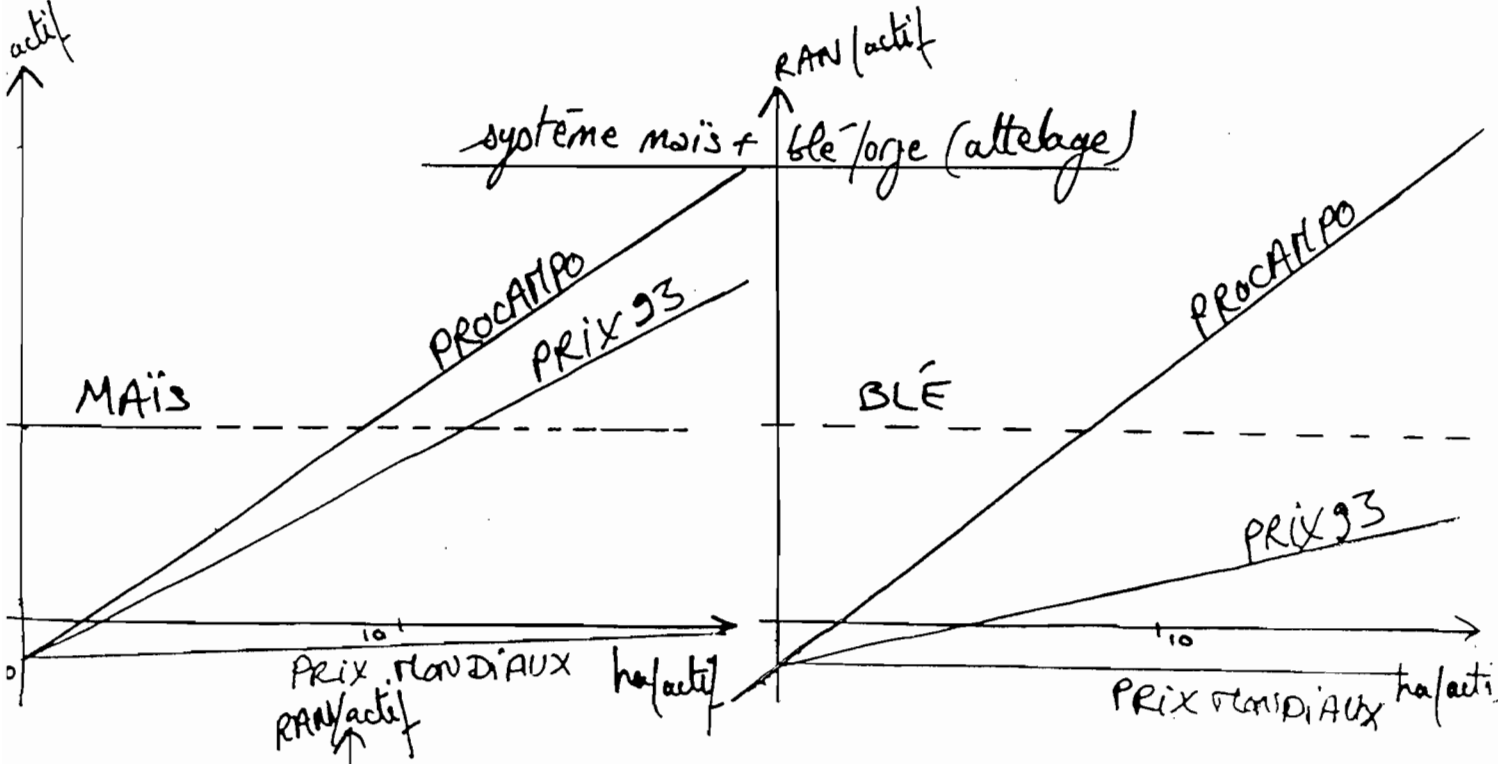 actif
RAN/actif
système maïs + blé/orje (attelage)
PROCAMPO
PRIX 93
MAÏS
10
PRIX MONDIAUX
ha/actif
PROCAMPO
BLÉ
PRIX 93
10
PRIX MONDIAUX
ha/acti
RAN/actif